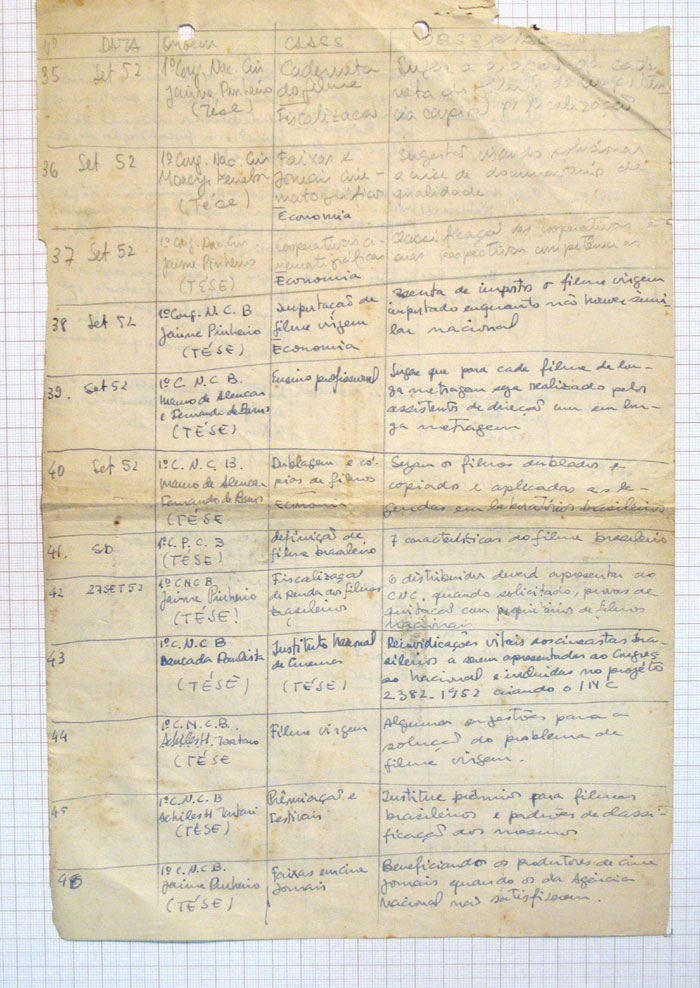 Nº DATA ORIGEM CLASS OBSERVAÇÃO
35 Set 52 1º Cong. Nac. Cin
Jaime Pinheiro
(Tése)
Caderneta
do filme
Fiscalização
Sugere a criação da cader
neta do filme
p/ fiscalização
36 Set 52 1º Cong. Nac. Cin
(Tése)
Faixas e
jornais cine-
matográficos
Economia
Sugestões visando solucionar
a crise de documentários de
qualidade
37 Set 52 1º Cong. Nac. Cin
Jaime Pinheiro
(TÉSE)
Cooperativas ci-
nematográficas
Economia
Classificação das cooperativas e
suas respectivas competências
38 Set 52 1º Cong. N. C. B
Jaime Pinheiro
(TÉSE)
Importação de
filme virgem
Economia
Isenta de impostos o filme virgem
importado enquanto não houver simi
lar nacional
39. Set 52 1º C. N. C. B.
Mauro de Alencar
e Fernando de Barros
(TÉSE)
Ensino profissional
Sugere que para cada filme de lon-
ga metragem seja realizado pelos
assistentes de direção um em lon-
ga metragem
40 Set 52 1º C. N. C. B.
Mauro de Alencar
Fernando de Barros
(TÉSE
Dublagem e có-
pias de filmes
Economia
Sejam os filmes dublados e
copiados e aplicadas as le-
gendas em laboratórios brasileiros
41. S/D 1º C. P. C. B
(TÉSE)
definição de
filme brasileiro
7 características do filme brasileiro
42 27 SET 52 1º C N C B
Jaime Pinheiro
(TÉSE)
Fiscalização
de renda dos filmes
brasileiros
O distribuidor deverá apresentar ao
C.N.C. quando solicitado, provas de
quitação com proprietários de filmes
nacionais
43 1º C. N. C B
Bancada Paulista
(TÉSE)
Instituto Nacional
de Cinema
(TÉSE)
Reinvidicações vitais dos cineastas bra-
sileiros a serem apresentados ao Congres
so Nacional e incluidas no projeto
2382-1952 criando o INC
44 1º C. N. C. B.
Achiles H.
(TÉSE
Filme virgem
Algumas sugestões para a
solução do problema de
filme virgem.
45 1º C. N. C. B
Achiles H
(TÉSE)
Prêmiação e
Festivais
Institue prêmios para filmes
brasileiros e padrões de classi-
ficação dos mesmos
46 1º C. N. C B.
Jaime Pinheiro
(TÉSE)
Faixas em cine
Jornais
Beneficiando os produtores de cine
jornais quando os da Agência
Nacional não satisfizerem.